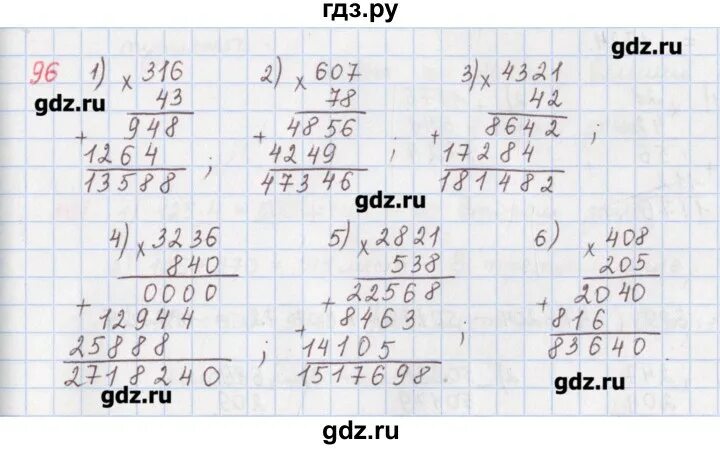 гдз.ру
gdz.ru
96 1) × 316 2) × 607 3) × 4321
43 78 42
gdz.ru
+ 948 + 4856 + 8642
1264 ; 4249 ; 17284 ;
13588 47346 181482
gdz.ru
4) × 3236 5) × 2821 6) × 408
840 538 205
gdz.ru
+ 0000 + 22568 + 2040
12944 8463 816
25888 ; 14105 ; 83640 .
2718240 1517698
gdz.ru
gdz.ru
gdz.ru